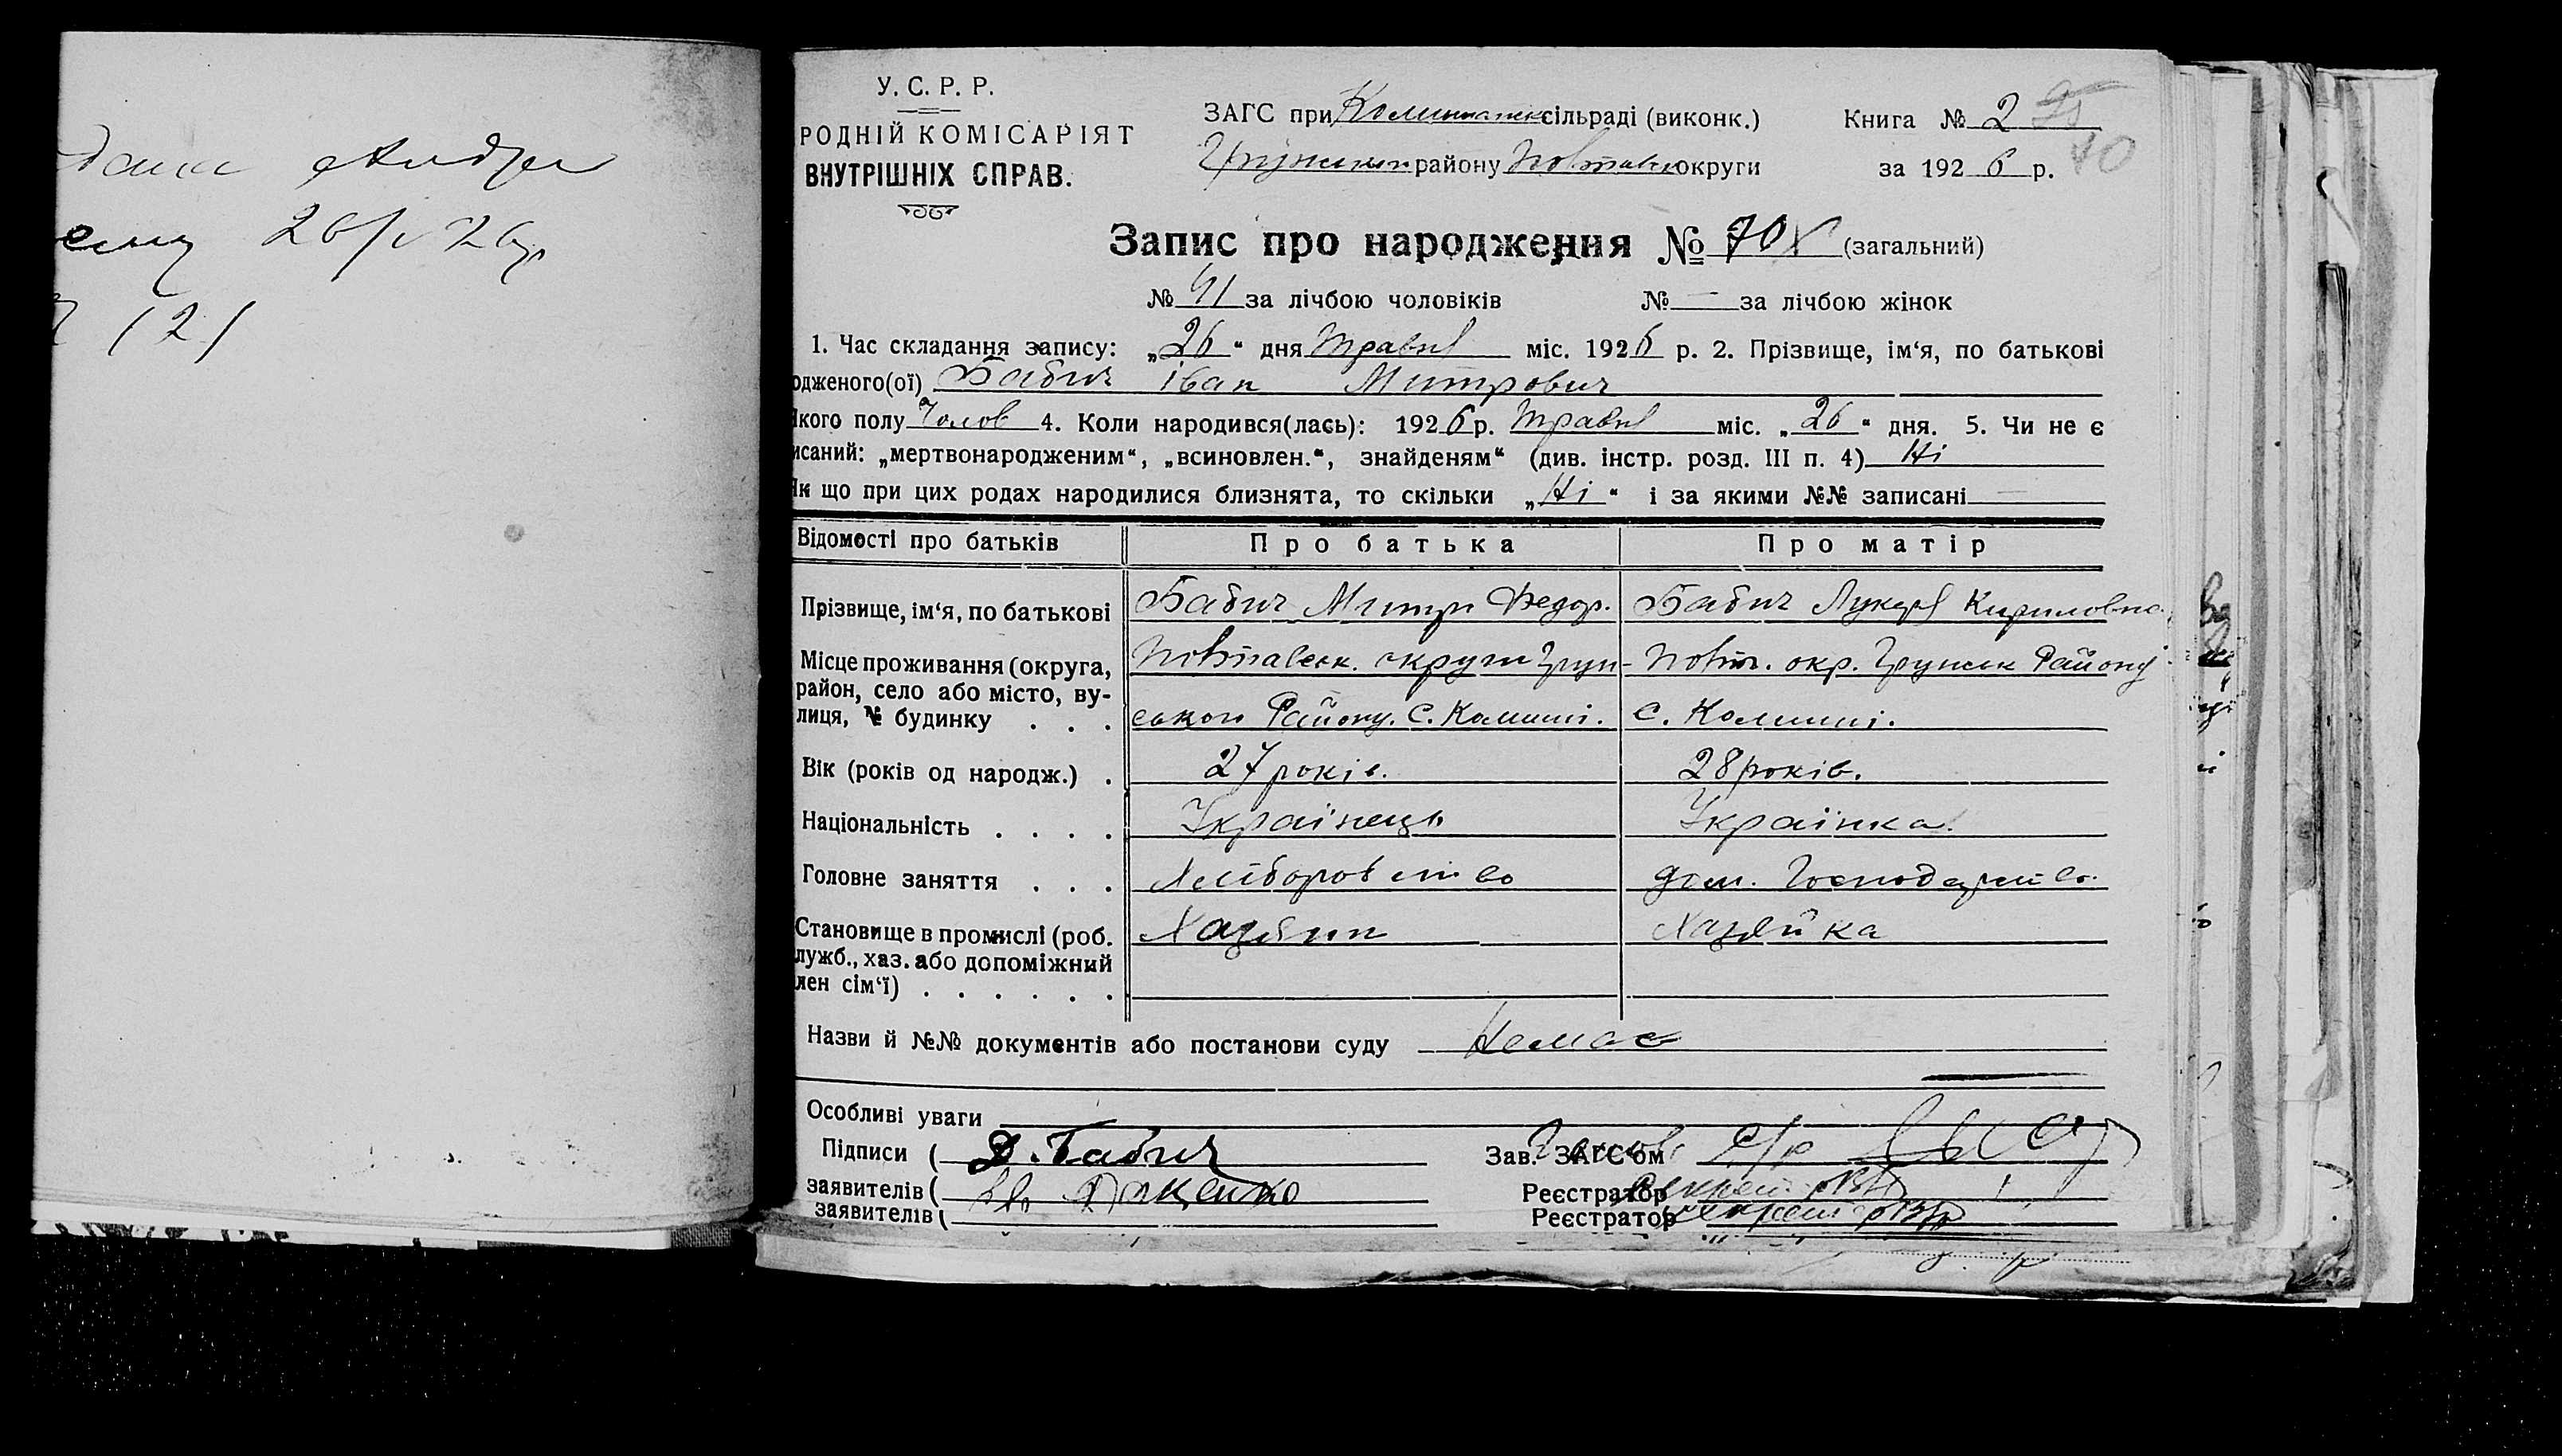 У. С. Р. Р.
РОДНІЙ КОМІСАРІЯТ
ВНУТРІШНІХ СПРАВ.
ЗАГС при сільраді (виконк.)
району округи
Книга № 2
за 1926 р.
70
26/ 26р
(2)
Запис про народження № 70 (загальний)
№ 41 за лічбою чоловіків № — за лічбою жінок
1. Час складання запису: „26“ дня Травня міс. 1926 р. 2. Прізвище, ім‘я, по батькові
одженого(ої) Бабич іван Митрович
якого полу Чолов 4. Коли народився(лась): 1926 р. Травня міс. „26“ дня. 5. Чи не є
исаний: „мертвонародженим“, „всиновлен.“, знайденям“ (див. інстр. розд. III п. 4) Ні
Як що при цих родах народилися близнята, то скільки „Ні“ і за якими №№ записані —
Відомості про батьків Про батька Про матір
Прізвище, ім‘я, по батькові Бабич Митро Федор. Бабич Лукеря Кириловна
Місце проживання (округа, Полтавськ. округи Грун- Полт. окр. Грунськ Району
район, село або місто, ву-
лиця, № будинку . . . ського Району. С. Комиші. С. Комиші.
Вік (років од народж.) . 27 років. 28 років.
Національність . . . . Українець Українка
Головне заняття . . . Хліборобство дом. Господарство.
Становище в промислі (роб. Хазяин Хазяйка
лужб., хаз. або допоміжний
лен сім‘ї) . . . . . .
Назви й №№ документів або постанови суду Немає
Особливі уваги
Підписи ( Д. Бабич Зав. ЗАГС‘ом
заявителів ( Реєстратор
заявителів ( Реєстратор